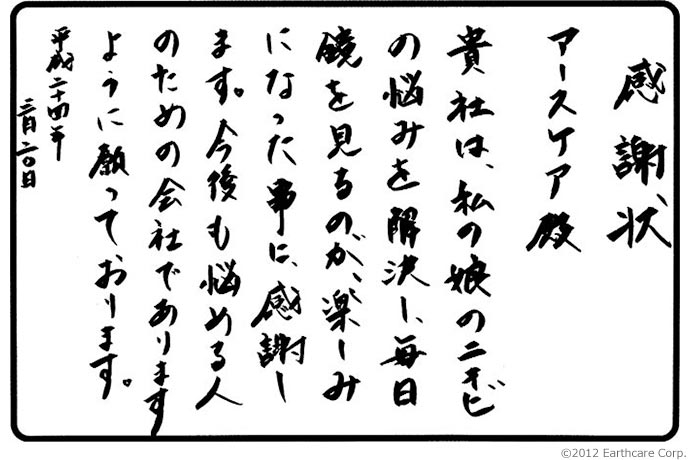 感謝状
アースケア殿
貴社は、私の娘のニキビ
の悩みを解決し、毎日
鏡を見るのが、楽しみ
になった事に、感謝し
ます。今後も悩める人
のための会社であります
ように願っております。
平成二十四年
三月二〇日
©2012 Earthcare Corp.